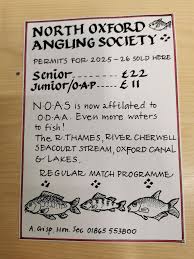 NORTH OXFORD
ANGLING SOCIETY
PERMITS FOR 2025-26 SOLD HERE
Senior £22
Junior/O·A·P £11
N·O·A·S is now affilated to
O·D·A·A. Even more waters
to fish!
The R. THAMES, RIVER CHERWELL
SEACOURT STREAM, OXFORD CANAL
& LAKES.
REGULAR MATCH PROGRAMME
A. Gisp. Hon. Sec 01865 553800